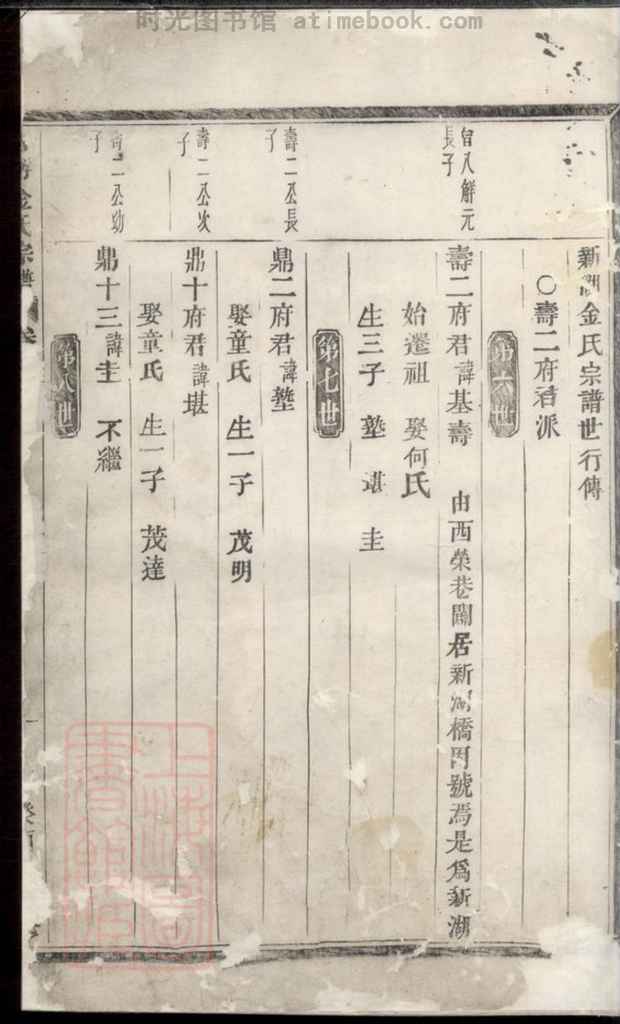 时光图书馆 atimebook.com
新湖金氏宗譜世行傳
〇壽二府君派
第六世
曾八解元
長子
壽二府君諱基壽 由西榮巷關居新湖橋因號焉是爲新湖
始遷祖 娶何氏
生三子 塾 堪 圭
第七世
壽二公長
子
鼎二府君諱塾
娶童氏 生一子 茂明
壽二公次
子
鼎十府君諱堪
娶童氏 生一子 茂達
壽二公幼
子
鼎十三諱圭 不繼
第八世
金氏宗譜 卷